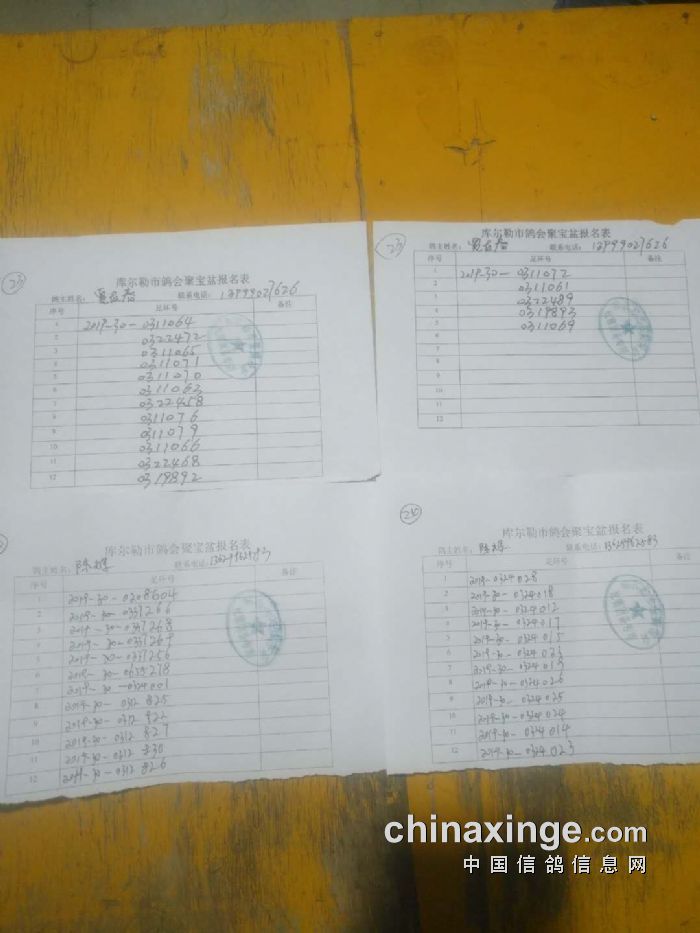 23
库尔勒市鸽会聚宝盆报名表
鸽主姓名: 联系电话: 13999027626
序号 足环号 备注
1 2019-30-0311064
2 0322472
3 0311065
4 0311071
5 0311070
6 0311063
7 0322458
8 0311076
9 0311079
10 0311066
11 0322468
12 0319892
23
库尔勒市鸽会聚宝盆报名表
鸽主姓名: 联系电话: 13999027626
序号 足环号 备注
1 2019-30-0311072
2 0311061
3 0322489
4 0319893
5 0311069
6
7
8
9
10
11
12
库尔勒市鸽会聚宝盆报名表
鸽主姓名: 陈 联系电话:
序号 足环号 备注
1 2019-30-0208604
2 2019-30-0337266
3 2019-30-0337268
4 2019-30-0337269
5 2019-30-0337256
6 2019-30-
7 2019-30-0324001
8 2019-30-0312825
9 2019-30-0312822
10 2019-30-0312827
11 2019-30-0312830
12 2019-30-0312826
24
库尔勒市鸽会聚宝盆报名表
鸽主姓名: 陈 联系电话:
序号 足环号 备注
1 2019-30-0324028
2 2019-30-0324018
3 2019-30-0324012
4 2019-30-0324017
5 2019-30-0324015
6 2019-30-0324023
7 2019-30-0324019
8 2019-30-0324026
9 2019-30-0324025
10 2019-30-0324024
11 2019-30-0324014
12 2019-30-0324023
chinaxinge.com
中国信鸽信息网